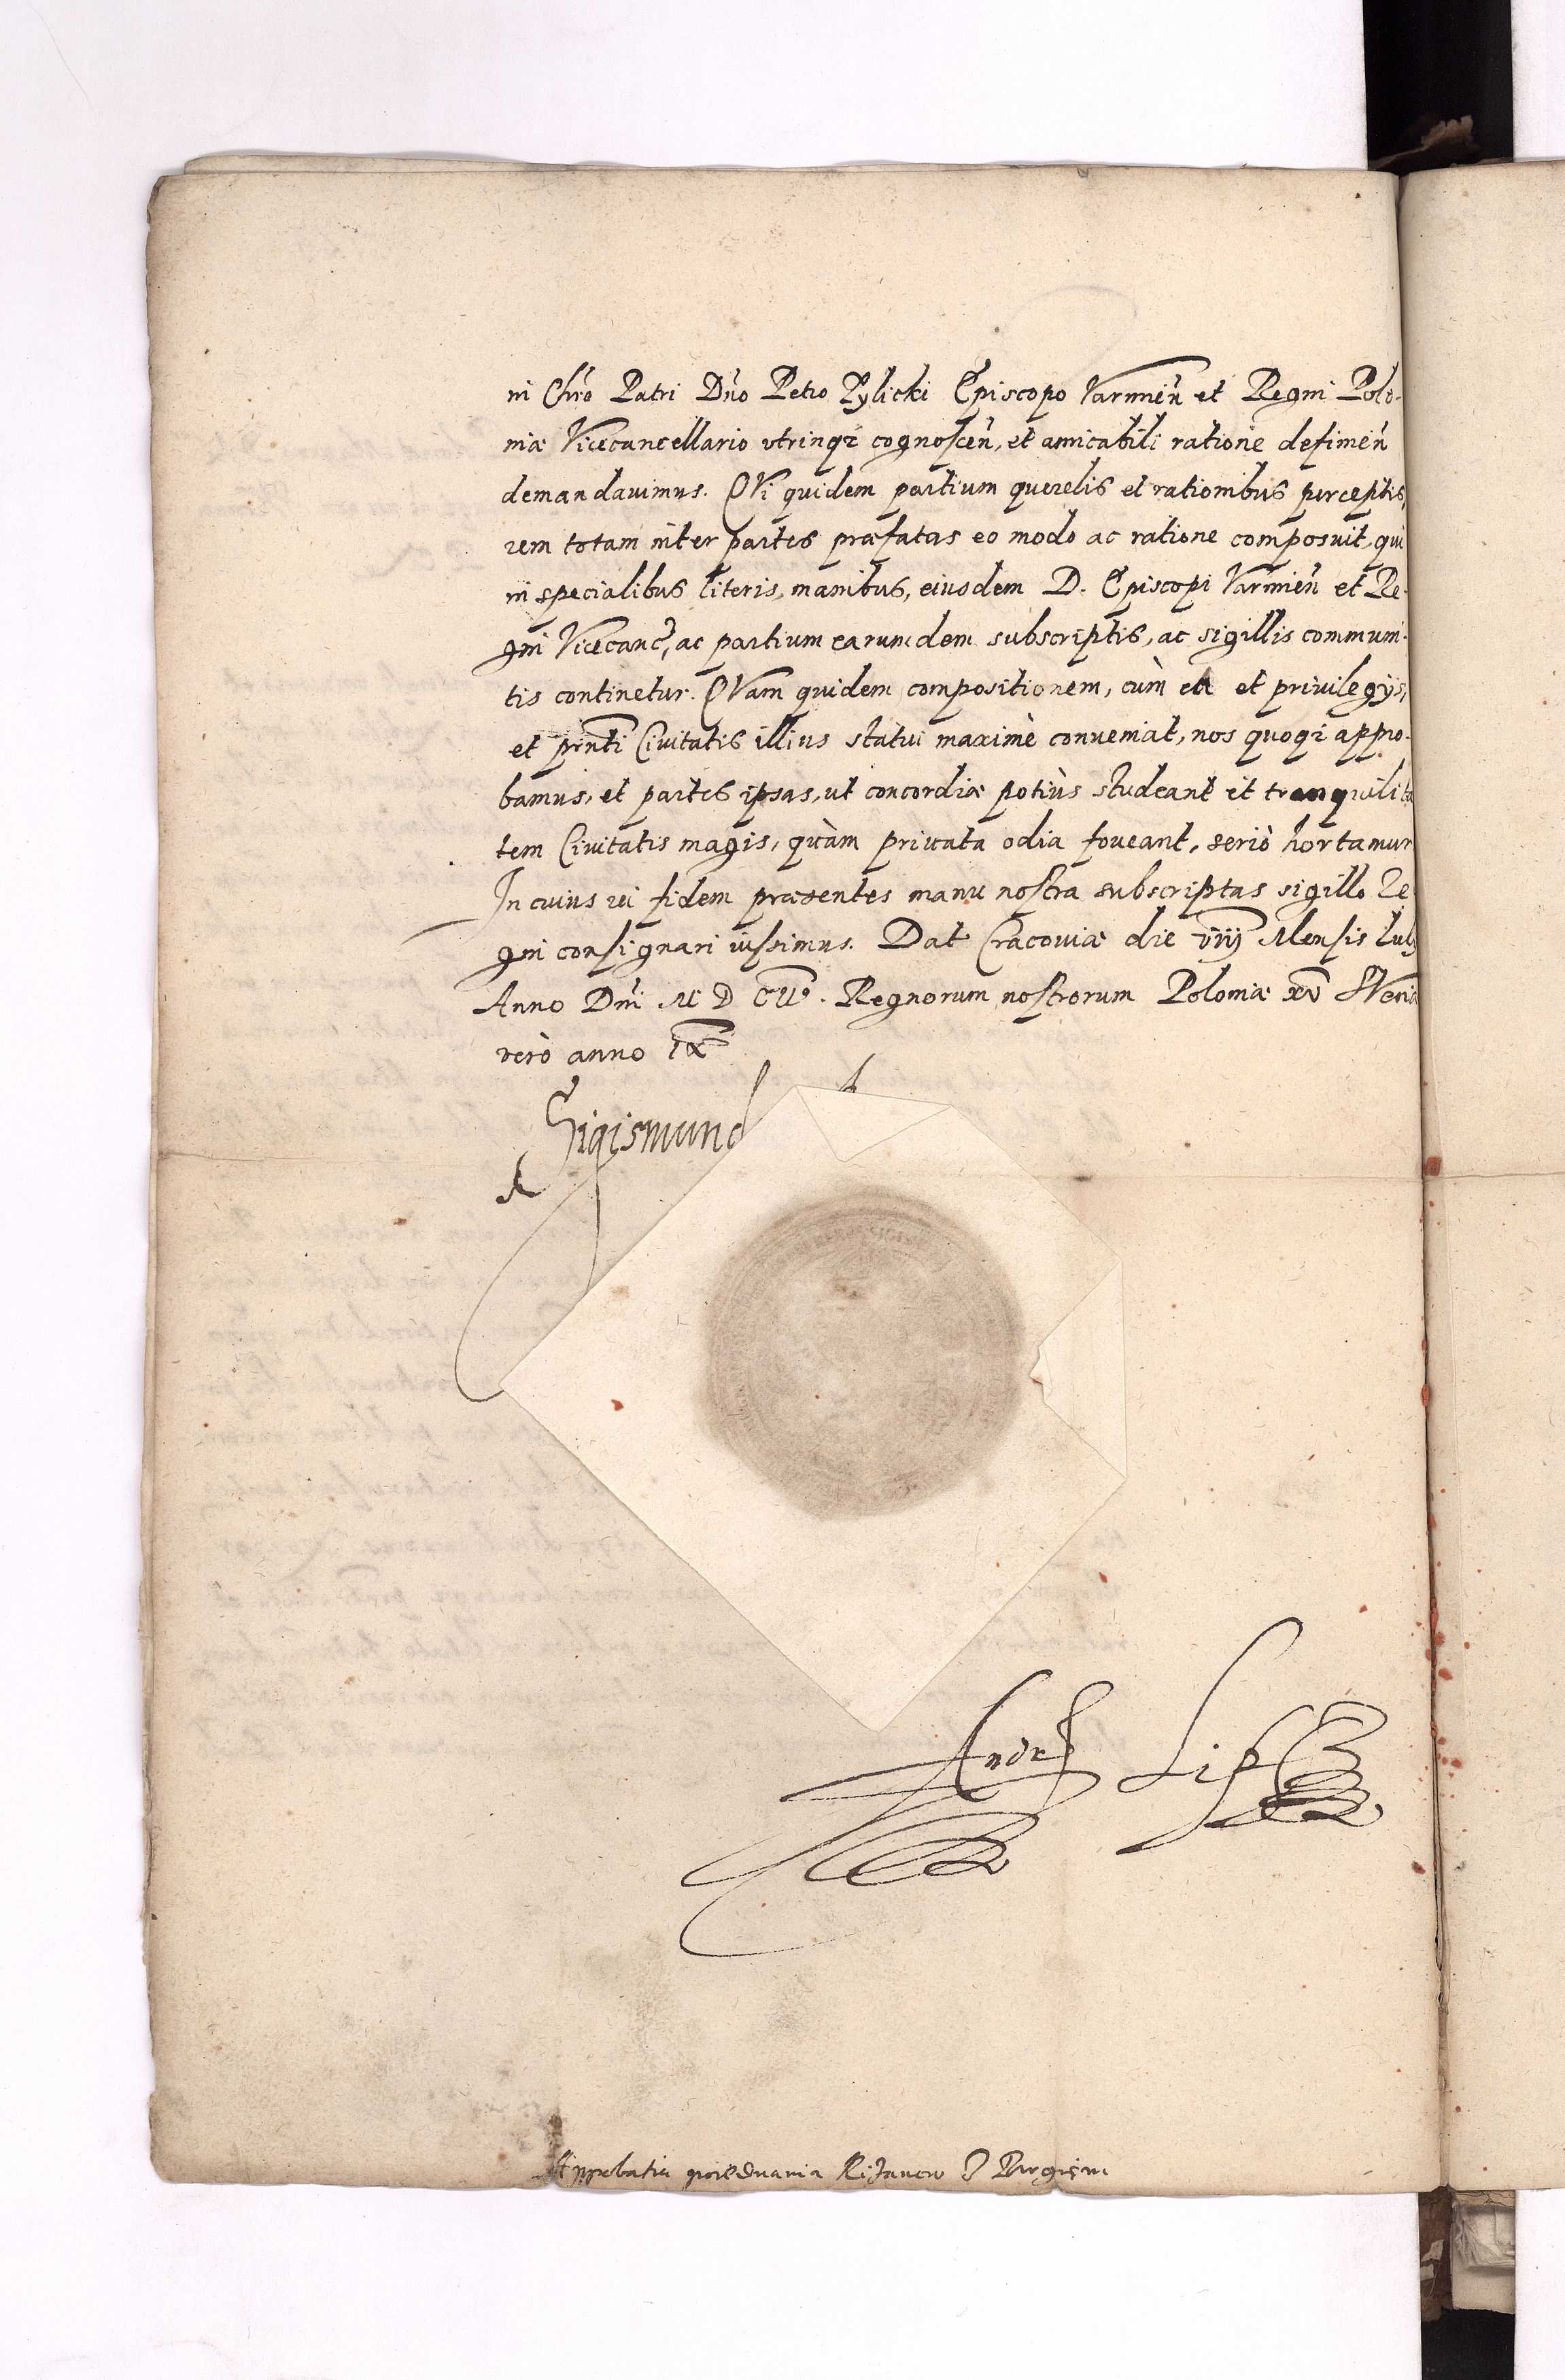 in Chro Patri Dno Petro Tylicki Episcopo Varmien et Regni Polo-
niæ Vicecancellario vtrinqꝫ cognoscen, et amicabili ratione definien
demandauimus. Qui quidem partium querelis et rationibus perceptis,
rem totam inter partes præfatas eo modo ac ratione composuit, qui
in specialibus literis, manibus, eiusdem D. Episcopi Varmien et Re-
gni Vicecanc, ac partium earumdem subscriptis, ac sigillis communi-
tis continetur. Quam quidem compositionem, cùm et et priuilegijs,
et pnti Ciuitatis illius statui maximè conueniat, nos quoqꝫ appro-
bamus, et partes ipsas, ut concordiæ potiùs studeant et tranquilita
tem Ciuitatis magis, quàm priuata odia foueant, seriò hortamur
In cuius rei fidem præsentes manu nostra subscriptas sigillo Re
gni consignari iussimus. Dat Cracouiæ die viij Mensis Iulij
Anno Dni M D CIIº. Regnorum nostrorum Poloniæ xv Sueciæ
verò anno ix
Sigismund
Andr Lip
Approbatia